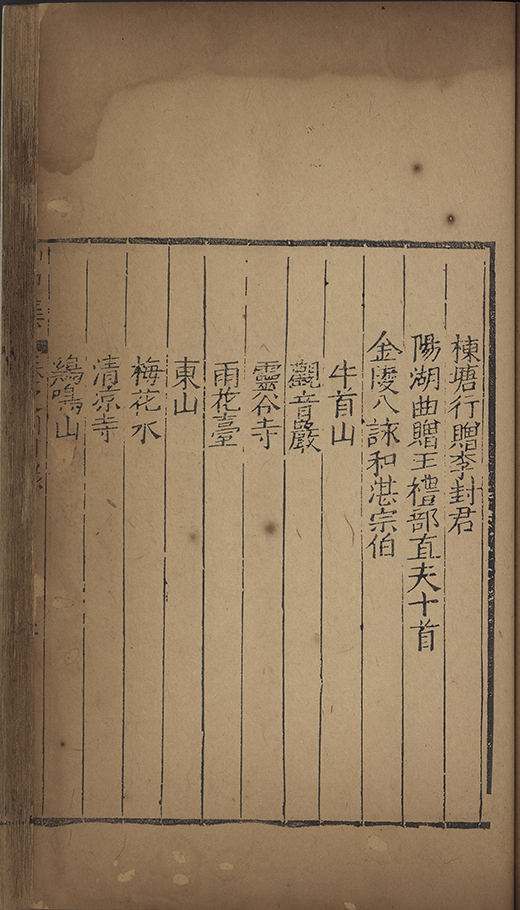 棟塘行贈李封君
陽湖曲贈王禮部直夫十首
金陵八詠和湛宗伯
牛首山
觀音巖
靈谷寺
雨花臺
東山
梅花水
清凉寺
鷄鳴山